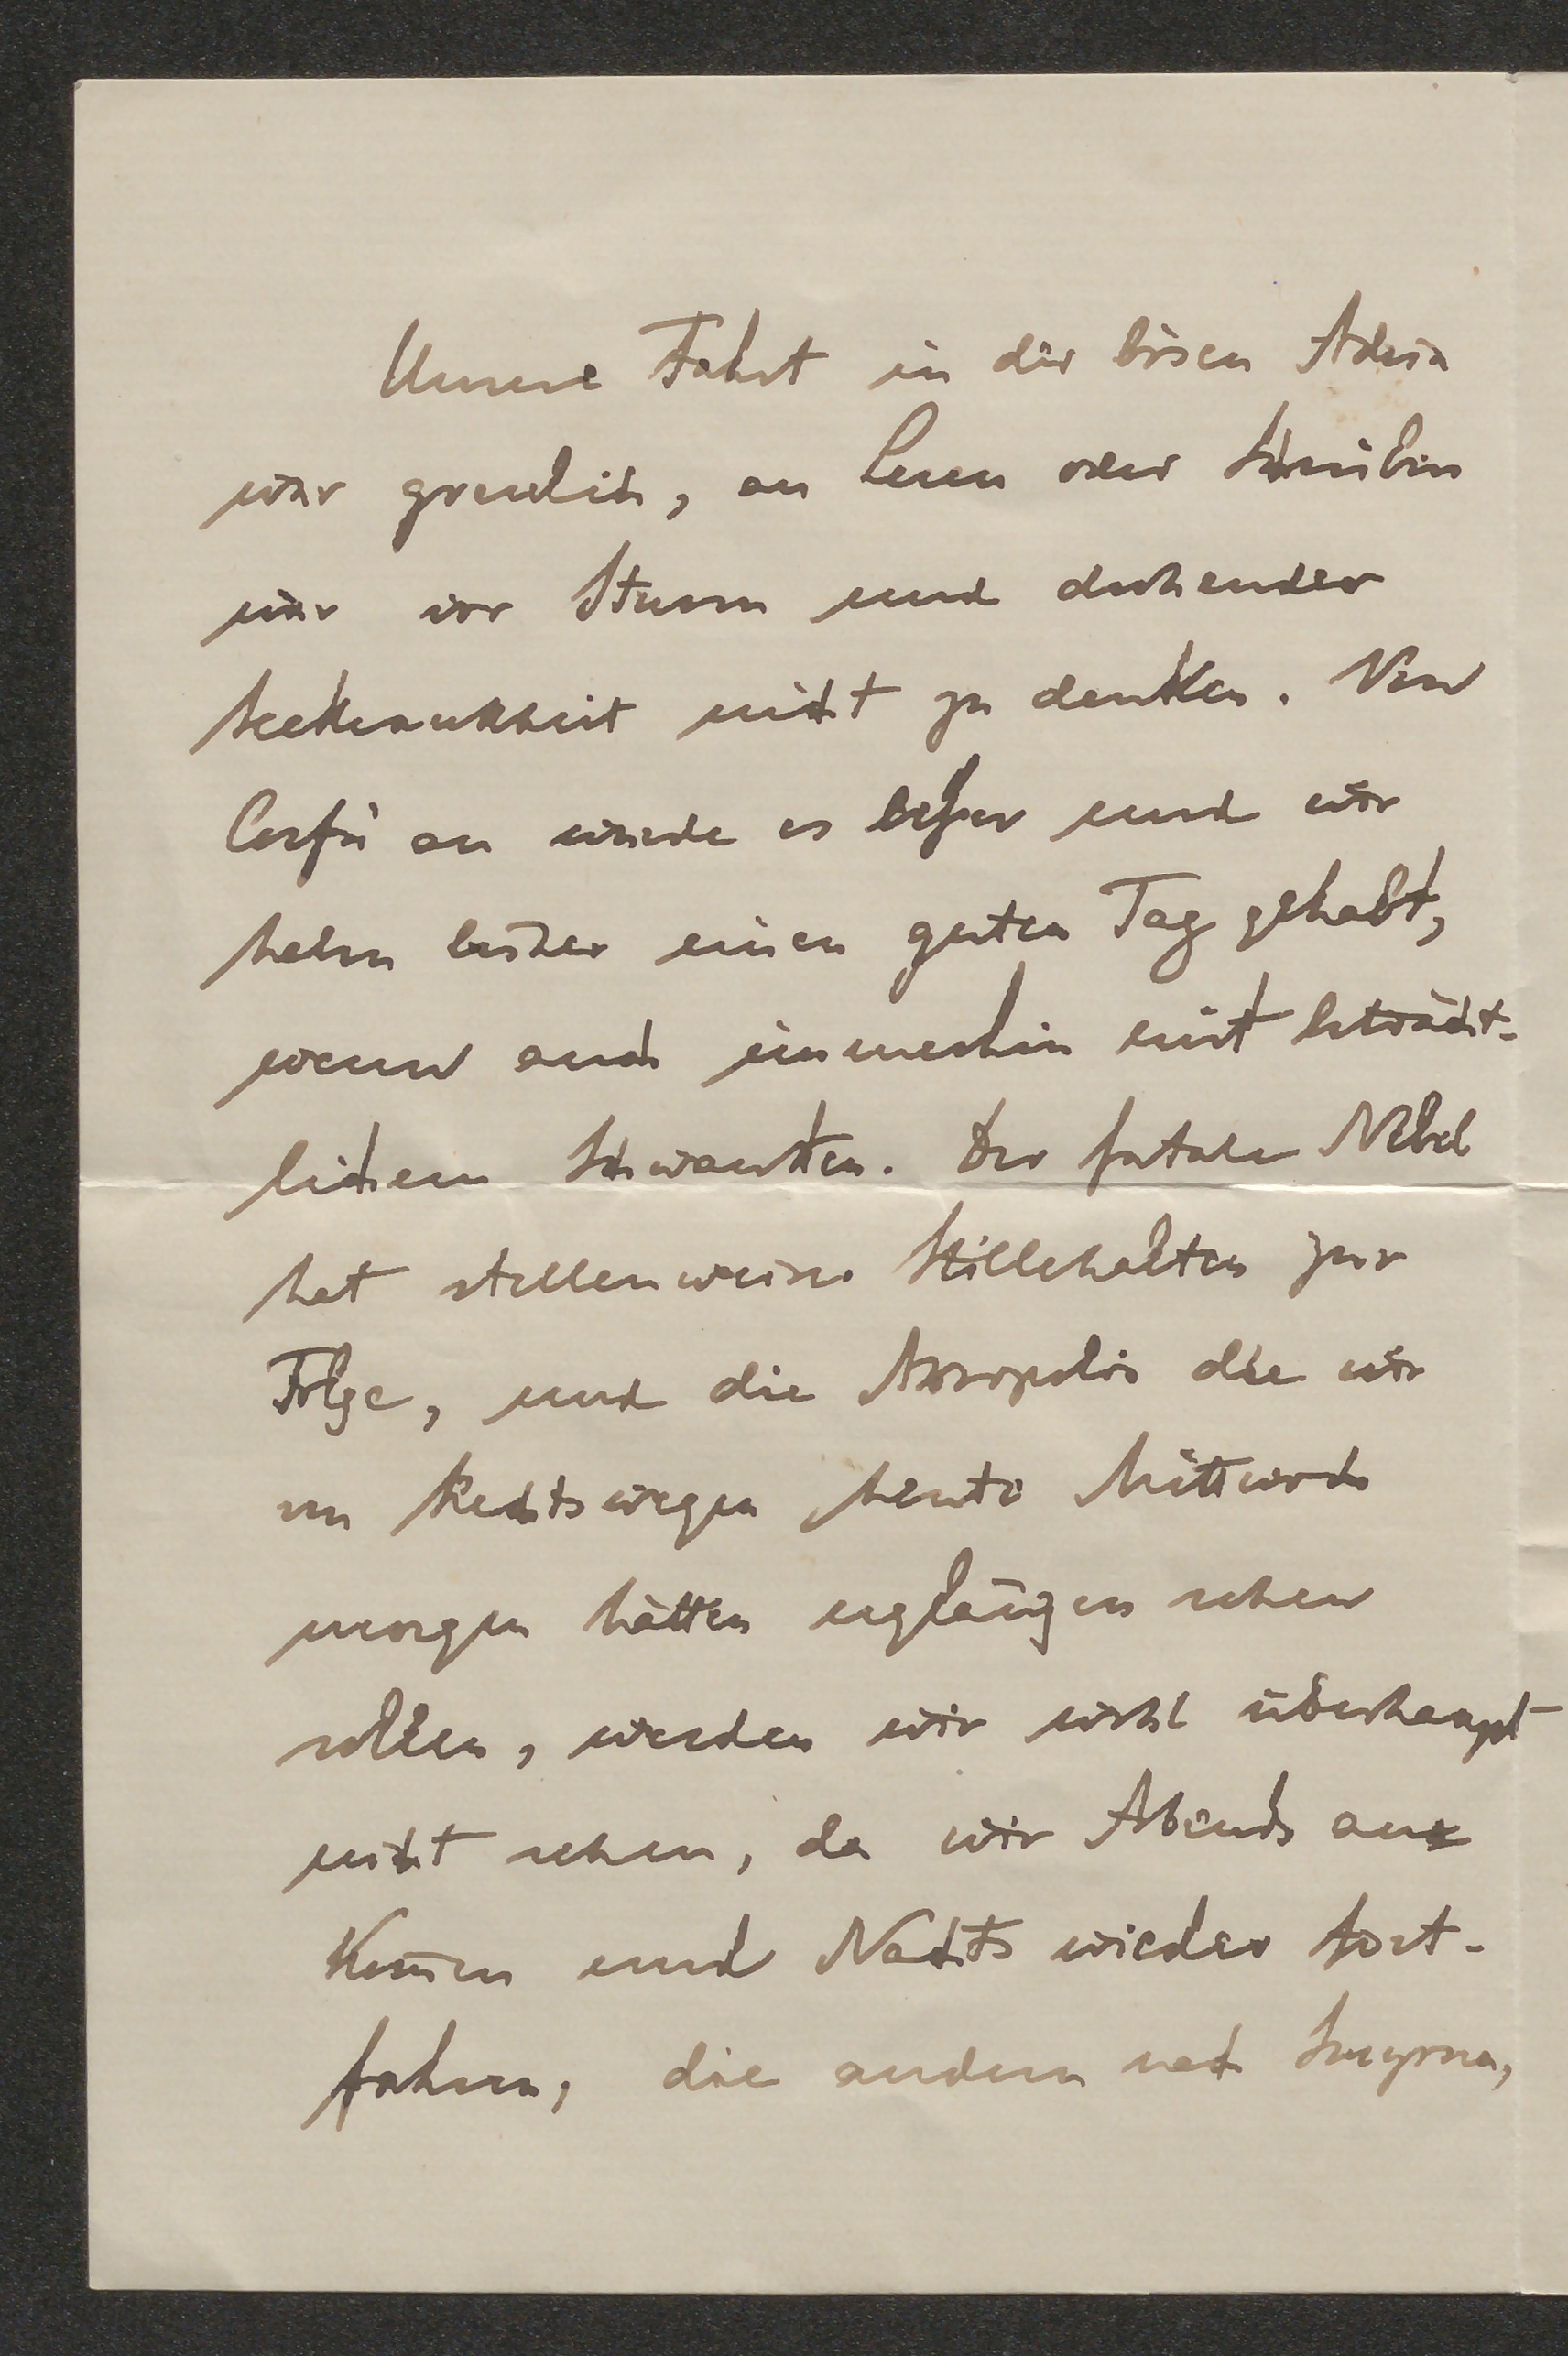 Unsere Fahrt in der bösen Adria
war greulich, an Lesen oder Schreiben
war vor Sturm und drohender
Seekrankheit nicht zu denken. Von
Corfù an wurde es beßer und wir
haben bisher einen guten Tag gehabt,
wenn auch immerhin mit beträcht-
lichem Schwanken. Der fatale Nebel
hat stellenweise Stillehalten zur
Folge, und die Akropolis die wir
von Rechtswegen heute Mittwoch
morgen hätten erglänzen sehen
sollen, werden wir wohl überhaupt
nicht sehen, da wir Abends an
kom̄en und Nachts wieder fort-
fahren, die andern nach Smyrna,